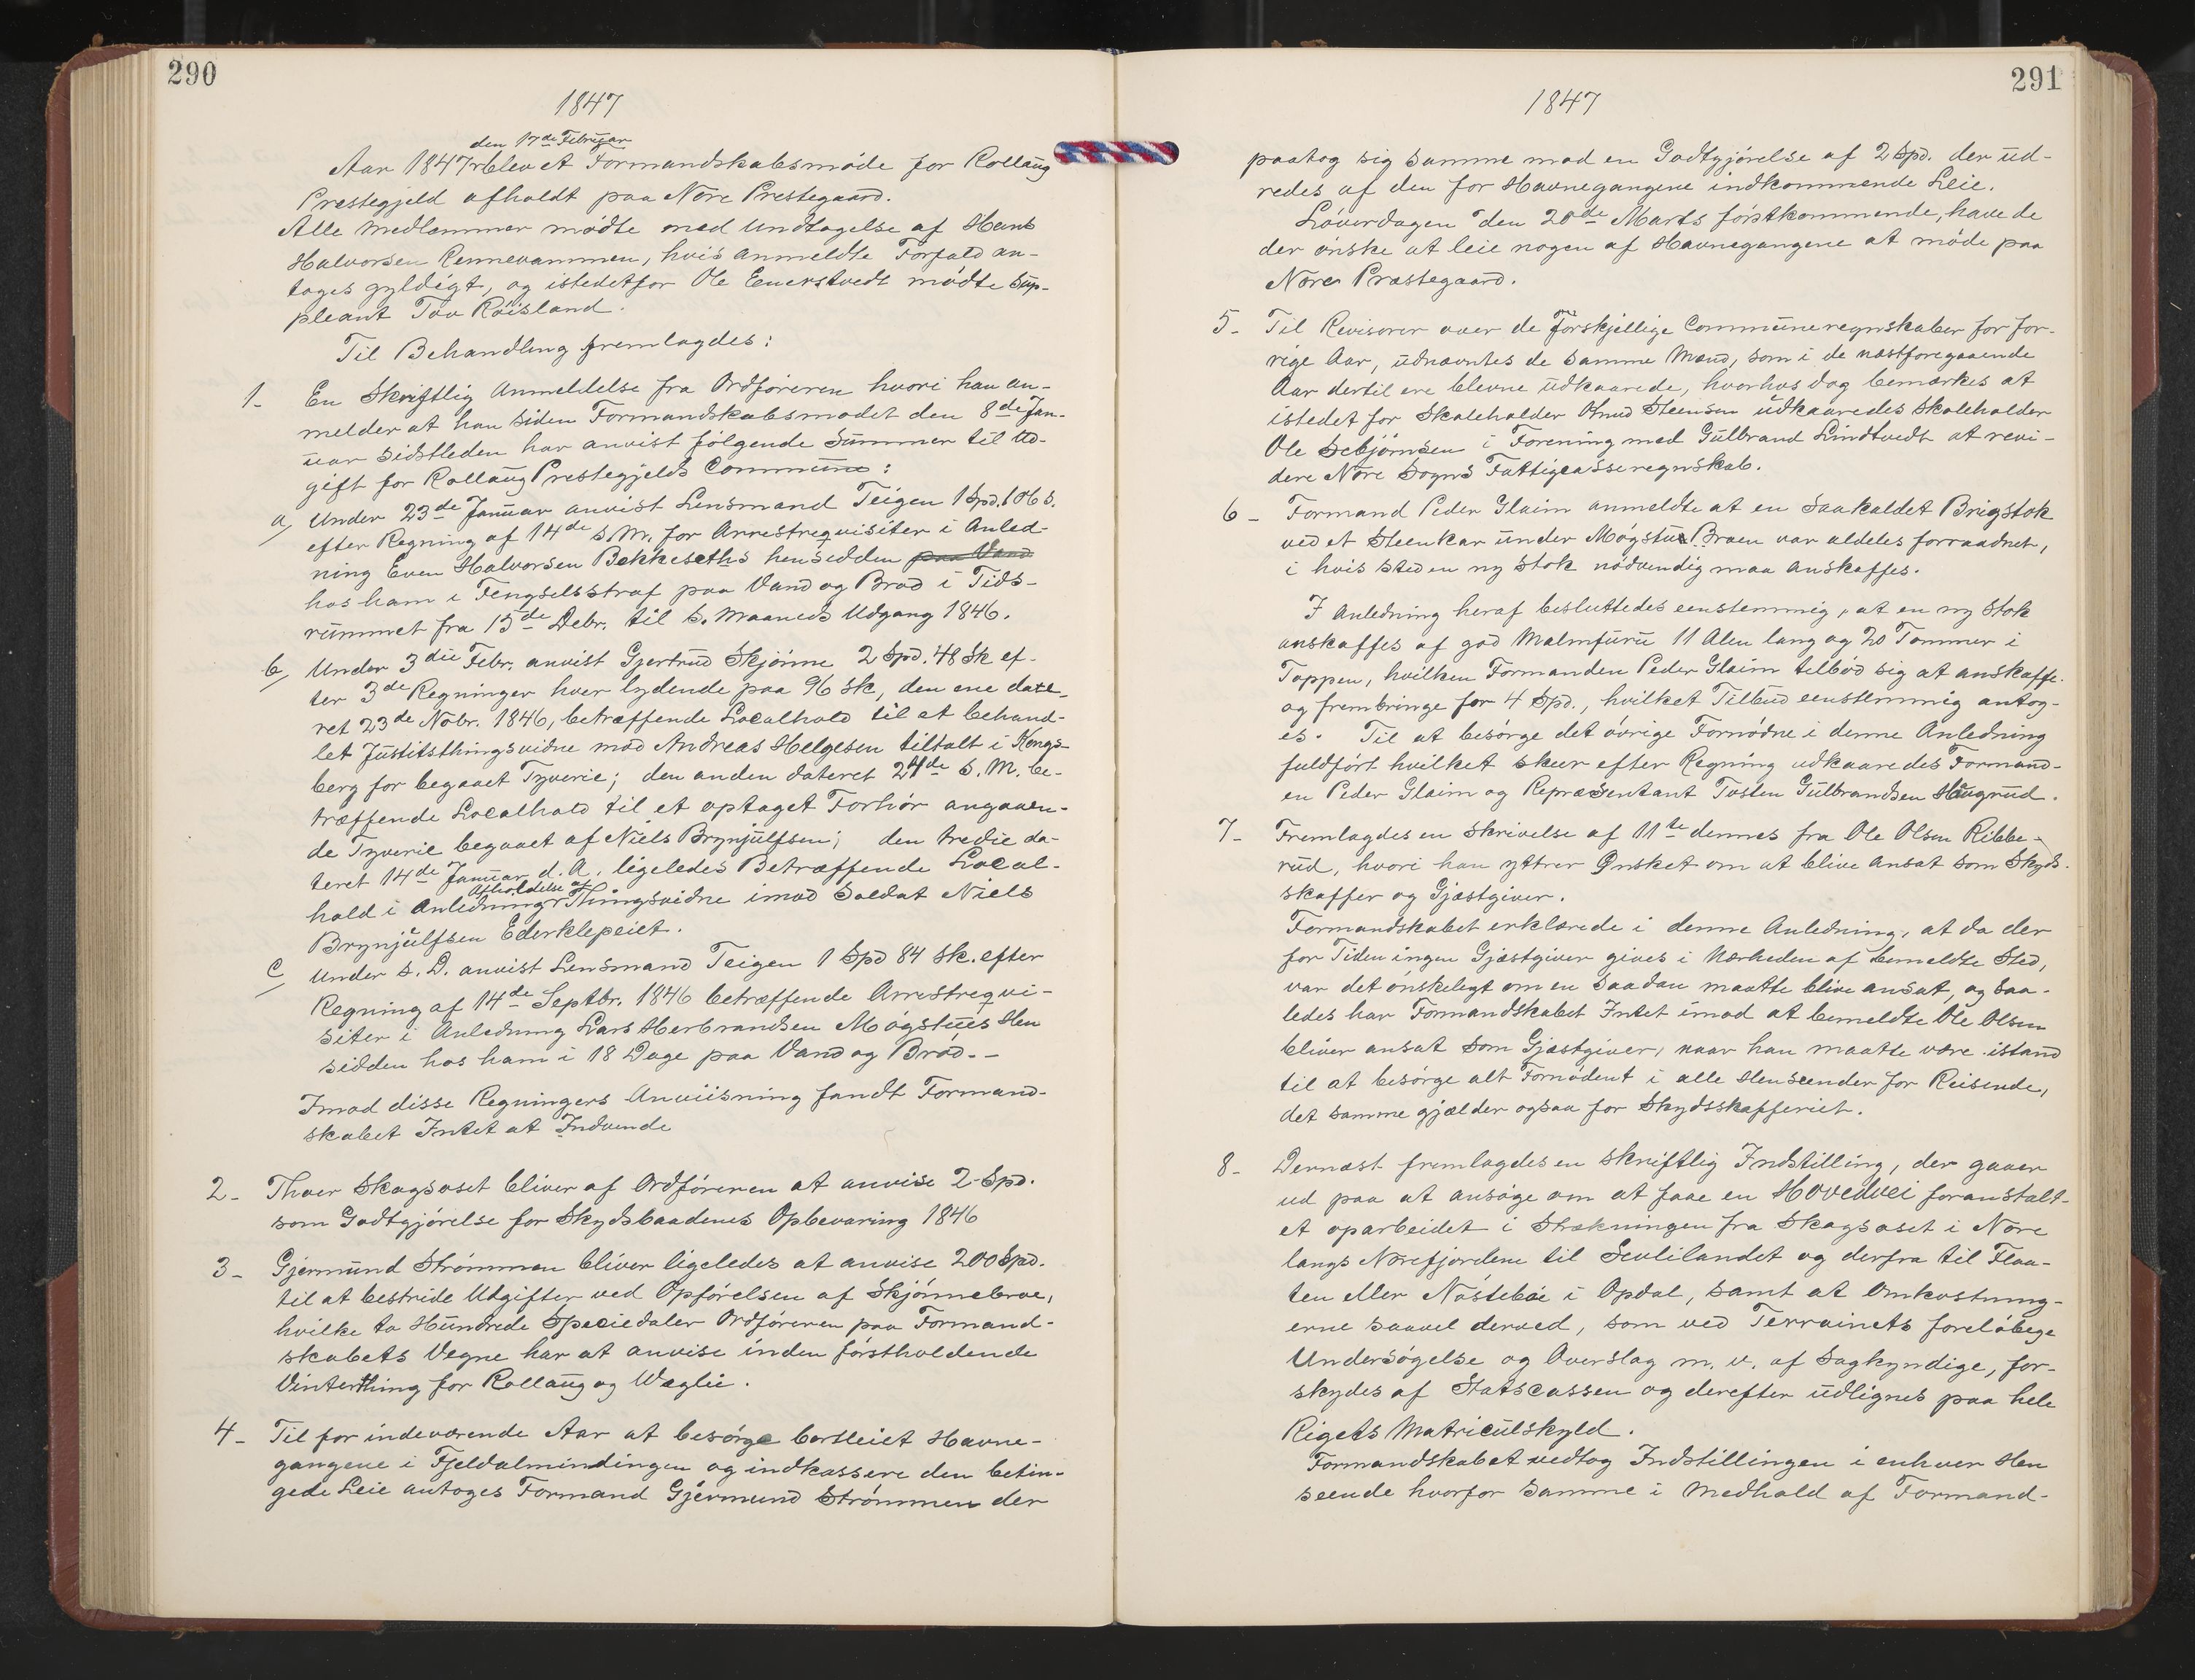 290
1847
den 17de Februar
Aar 1847 blev et Formandskabsmøde for Rollaug
Prestegjeld afholdt paa Nore Prestegaard.
Alle Medlemmer mødte med Undtagelse af Hans
Halvorsen Rennevammen, hvis anmeldte Forfald an-
toges gyldigt, og istedetfor Ole Enerstvedt mødte Sup-
pleant Tov Røisland.
Til Behandling fremlagdes:
1- En Skriftlig Anmeldelse fra Ordføreren hvori han an-
melder at han siden Formandskabsmødet den 8de Jan-
uar sidstleden har anvist følgende Summer til Ud-
gift for Rollaug Prestegjelds Commune:
a/ Under 23de Januar anvist Lensmand Teigen 1 Spd. 106 s.
efter Regning af 14de s.M. for Arrestrequisiter i Anled-
ning Even Halvorsen Bekkeseths hensidden paa Vand
hos ham i Fengselsstraf paa Vand og Brød i Tids-
rummet fra 15de Debr. til s. Maaneds Udgang 1846.
b/ Under 3die Febr. anvist Gjertrud Skjønne 2 Spd. 48 Sk ef-
ter 3de Regninger hver lydende paa 96 Sk, den ene date-
ret 23de Nobr. 1846, betræffende Localhold til et behand-
let Justitsthingsvidne mod Andreas Helgesen tiltalt i Kongs-
berg for begaaet Tyverie; den anden dateret 24de s. M. be-
træffende Localhold til et optaget Forhør angaaen-
de Tyverie begaaet af Niels Brynjulfsen; den tredie da-
teret 14de Januar d. A. ligeledes Betræffende Local-
Afholdelse af
hold i Anledning Thingsvidne imod Soldat Niels
Brynjulfsen Ederklepeiet.
c/ Under s. D. anvist Lensmand Teigen 1 Spd 84 Sk. efter
Regning af 14de Septbr. 1846 betræffende Arrestreqvi-
siter i Anledning Lars Herbrandsen Møgstues Hen
sidden hos ham i 18 Dage paa Vand og Brød.-
Imod disse Regningers Anviisning fandt Formand-
skabet Intet at Indvende
2- Thoer Skogsoset bliver af Ordføreren at anvise 2 Spd.
som Godtgjørelse for Skydsbaadenes Opbevaring 1846
3- Gjermund Strømmen bliver ligeledes at anvise 200 Spd.
til at bestride Udgifter ved Opførelsen af Skjønnebroe,
hvilke to Hundrede Speciedaler Ordføreren paa Formand-
skabets Vegne har at anvise inden førstholdende
Vinterthing for Rollaug og Wæglie.
4- Til for indeværende Aar at besørge bortleiet Havne-
gangene i Fjeldalmindingen og indkassere den betin-
gede Leie antoges Formand Gjermund Strømmen der
291
1847
paatog sig samme mod en Godtgjørelse af 2 Spd. der ud-
redes af den for Havnegangene indkommende Leie.
Løverdagen den 20de Marts førstkommende, have de
der ønske at leie nogen af Havnegangene at møde paa
Nore Præstegaard.
5- Til Revisorer over de forskjellige Communeregnskaber for for-
rige Aar, udnævntes de samme Mænd, som i de næstforegaaende
Aar dertil ere blevne udkaarede, hvorhos dog bemærkes at
istedet for Skoleholder Knud Steensen udkaaredes Skoleholder
Ole Sebjørnsen i Forening med Gulbrand Lindtvedt at revi-
dere Nore Sogns Fattigcasseregnskab.
6- Formand Peder Glaim anmeldte at en saakaldet Brigstok
ved et Steenkar under Møgstue Broen var aldeles forraadnet,
i hvis sted en ny Stok nødvendig maa anskaffes.
I Anledning heraf besluttedes eenstemmig, at en ny Stok
anskaffes af god Malmfuru 11 Alen lang og 20 Tommer i
Toppen, hvilken Formanden Peder Glaim tilbød sig at anskaffe
og frembringe for 4 Spd., hvilket Tilbud eenstemmig antog-
es. Til at besørge det øvrige Fornødne i denne Anledning
fuldført hvilket skeer efter Regning udkaaredes Formand-
en Peder Glaim og Repræsentant Tosten Gulbrandsen Haugrud.
7- Fremlagdes en Skrivelse af 11te dennes fra Ole Olsen Ribbe-
rud, hvori han yttrer Ønsket om at blive ansat som Skyds-
skaffer og Gjæstgiver.
Formandskabet erklærede i denne Anledning, at da der
for Tiden ingen Gjæstgiver gives i Nærheden af bemeldte Sted,
var det ønskeligt om en Saadan maatte blive ansat, og saa-
ledes har Formandskabet Intet imod at bemeldte Ole Olsen
bliver ansat som Gjæstgiver, naar han maatte være istand
til at besørge alt Fornødent i alle Henseender for Reisende,
det samme gjælder ogsaa for Skydsskafferiet.
8- Dernæst fremlagdes en Skriftlig Indstilling, der gaaer
ud paa at ansøge om at faae en Hovedvei foranstalt-
et oparbeidet i Strækningen fra Skogsoset i Nore
langs Norefjordene til Sevlilandet og derfra til Flaa-
ten eller Nøstebøe i Opdal, samt at Omkostning-
erne saavel derved, som ved Terrainets foreløbige
Undersøgelse og Overslag m. v. af Sagkyndige, for-
skydes af Statscassen og derefter udlignes paa hele
Rigets Matriculskyld.
Formandskabet vedtog Indstillingen i enhver Hen
seende hvorfor Samme i Medhold af Formand-